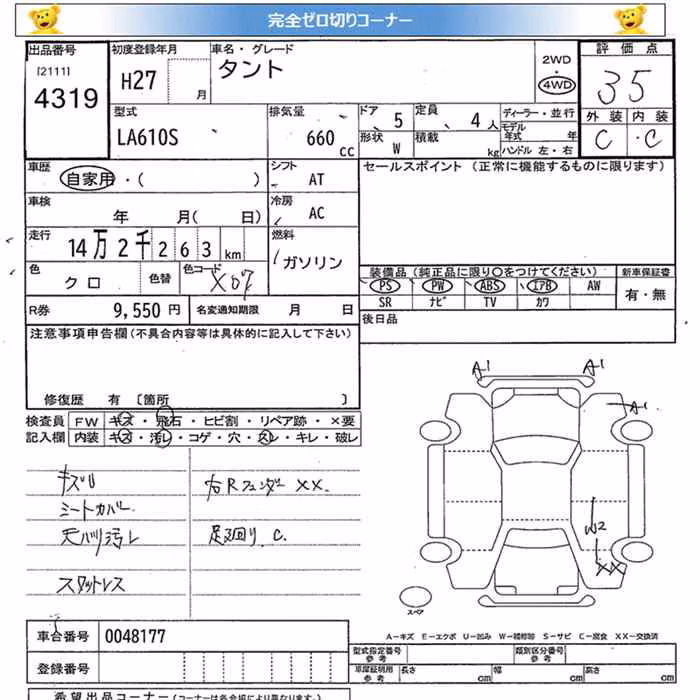 完全ゼロ切りコーナー
出品番号 初度登録年月 車名・グレード 評価点
[2111] 4319 H27 月 タント 2WD 4WD 35
型式 排気量 ドア 5 定員 4人 ディーラー・並行 外装 内装
LA610S 660 cc 形状 W 積載 kg モデル年式 年 ハンドル 左・右 C・C
車歴 自家用・( ) シフト AT セールスポイント (正常に機能するものに限ります)
車検 年 月( 日) 冷房 AC
走行 14万2千263km 燃料 ガソリン
色 クロ 色替 色コード X07 装備品(純正品に限り○をつけてください) 新車保証書
PS PW ABS エアB AW 有・無
SR ナビ TV カワ
R券 9,550円 名変通知期限 月 日 後日品
注意事項申告欄(不具合内容等は具体的に記入して下さい)
修復歴 有 〔箇所 〕
検査員 FW キズ・飛石・ヒビ割・リペア跡・×要
記入欄 内装 キズ・汚レ・コゲ・穴・スレ・キレ・破レ
A1 A1
A1
キズリ 右Rフェンダー XX.
シートカバー
天バリ汚レ 足廻リ C.
W2
XX
スタットレス
スペア
A−キズ E−エクボ U−凹み W−補修跡 S−サビ C−腐食 XX−交換済
車台番号 0048177
型式指定番号 参考 類別区分番号 参考
登録番号 車庫証明用 参考 長さ cm 幅 cm 高さ cm
希望出品コーナー(コーナーは各会場により異なります)